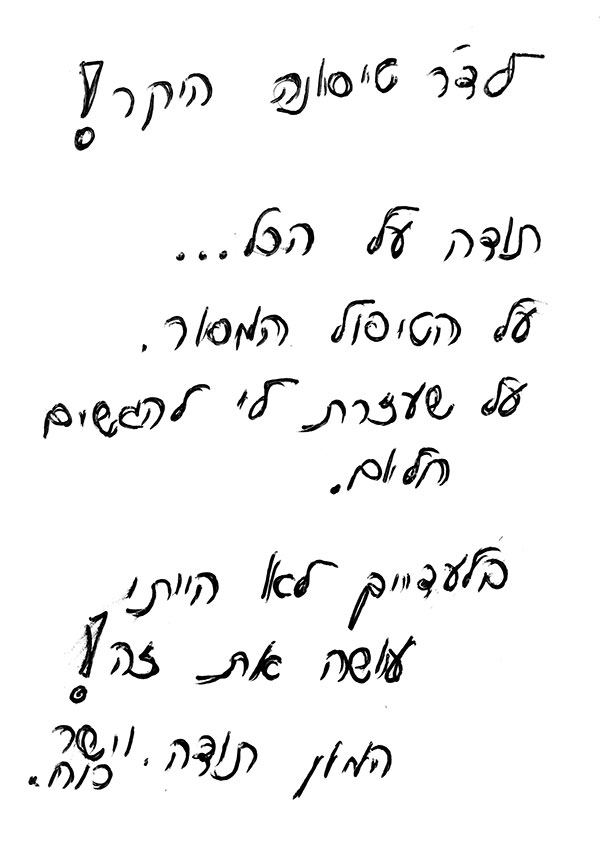 לד״ר טיסונה היקר!
תודה על הכל...
על הטיפול המסור.
על שעזרת לי להגשים
חלום.
בלעדייך לא הייתי
עושה את זה!
המון תודה. ויישר
כוח.